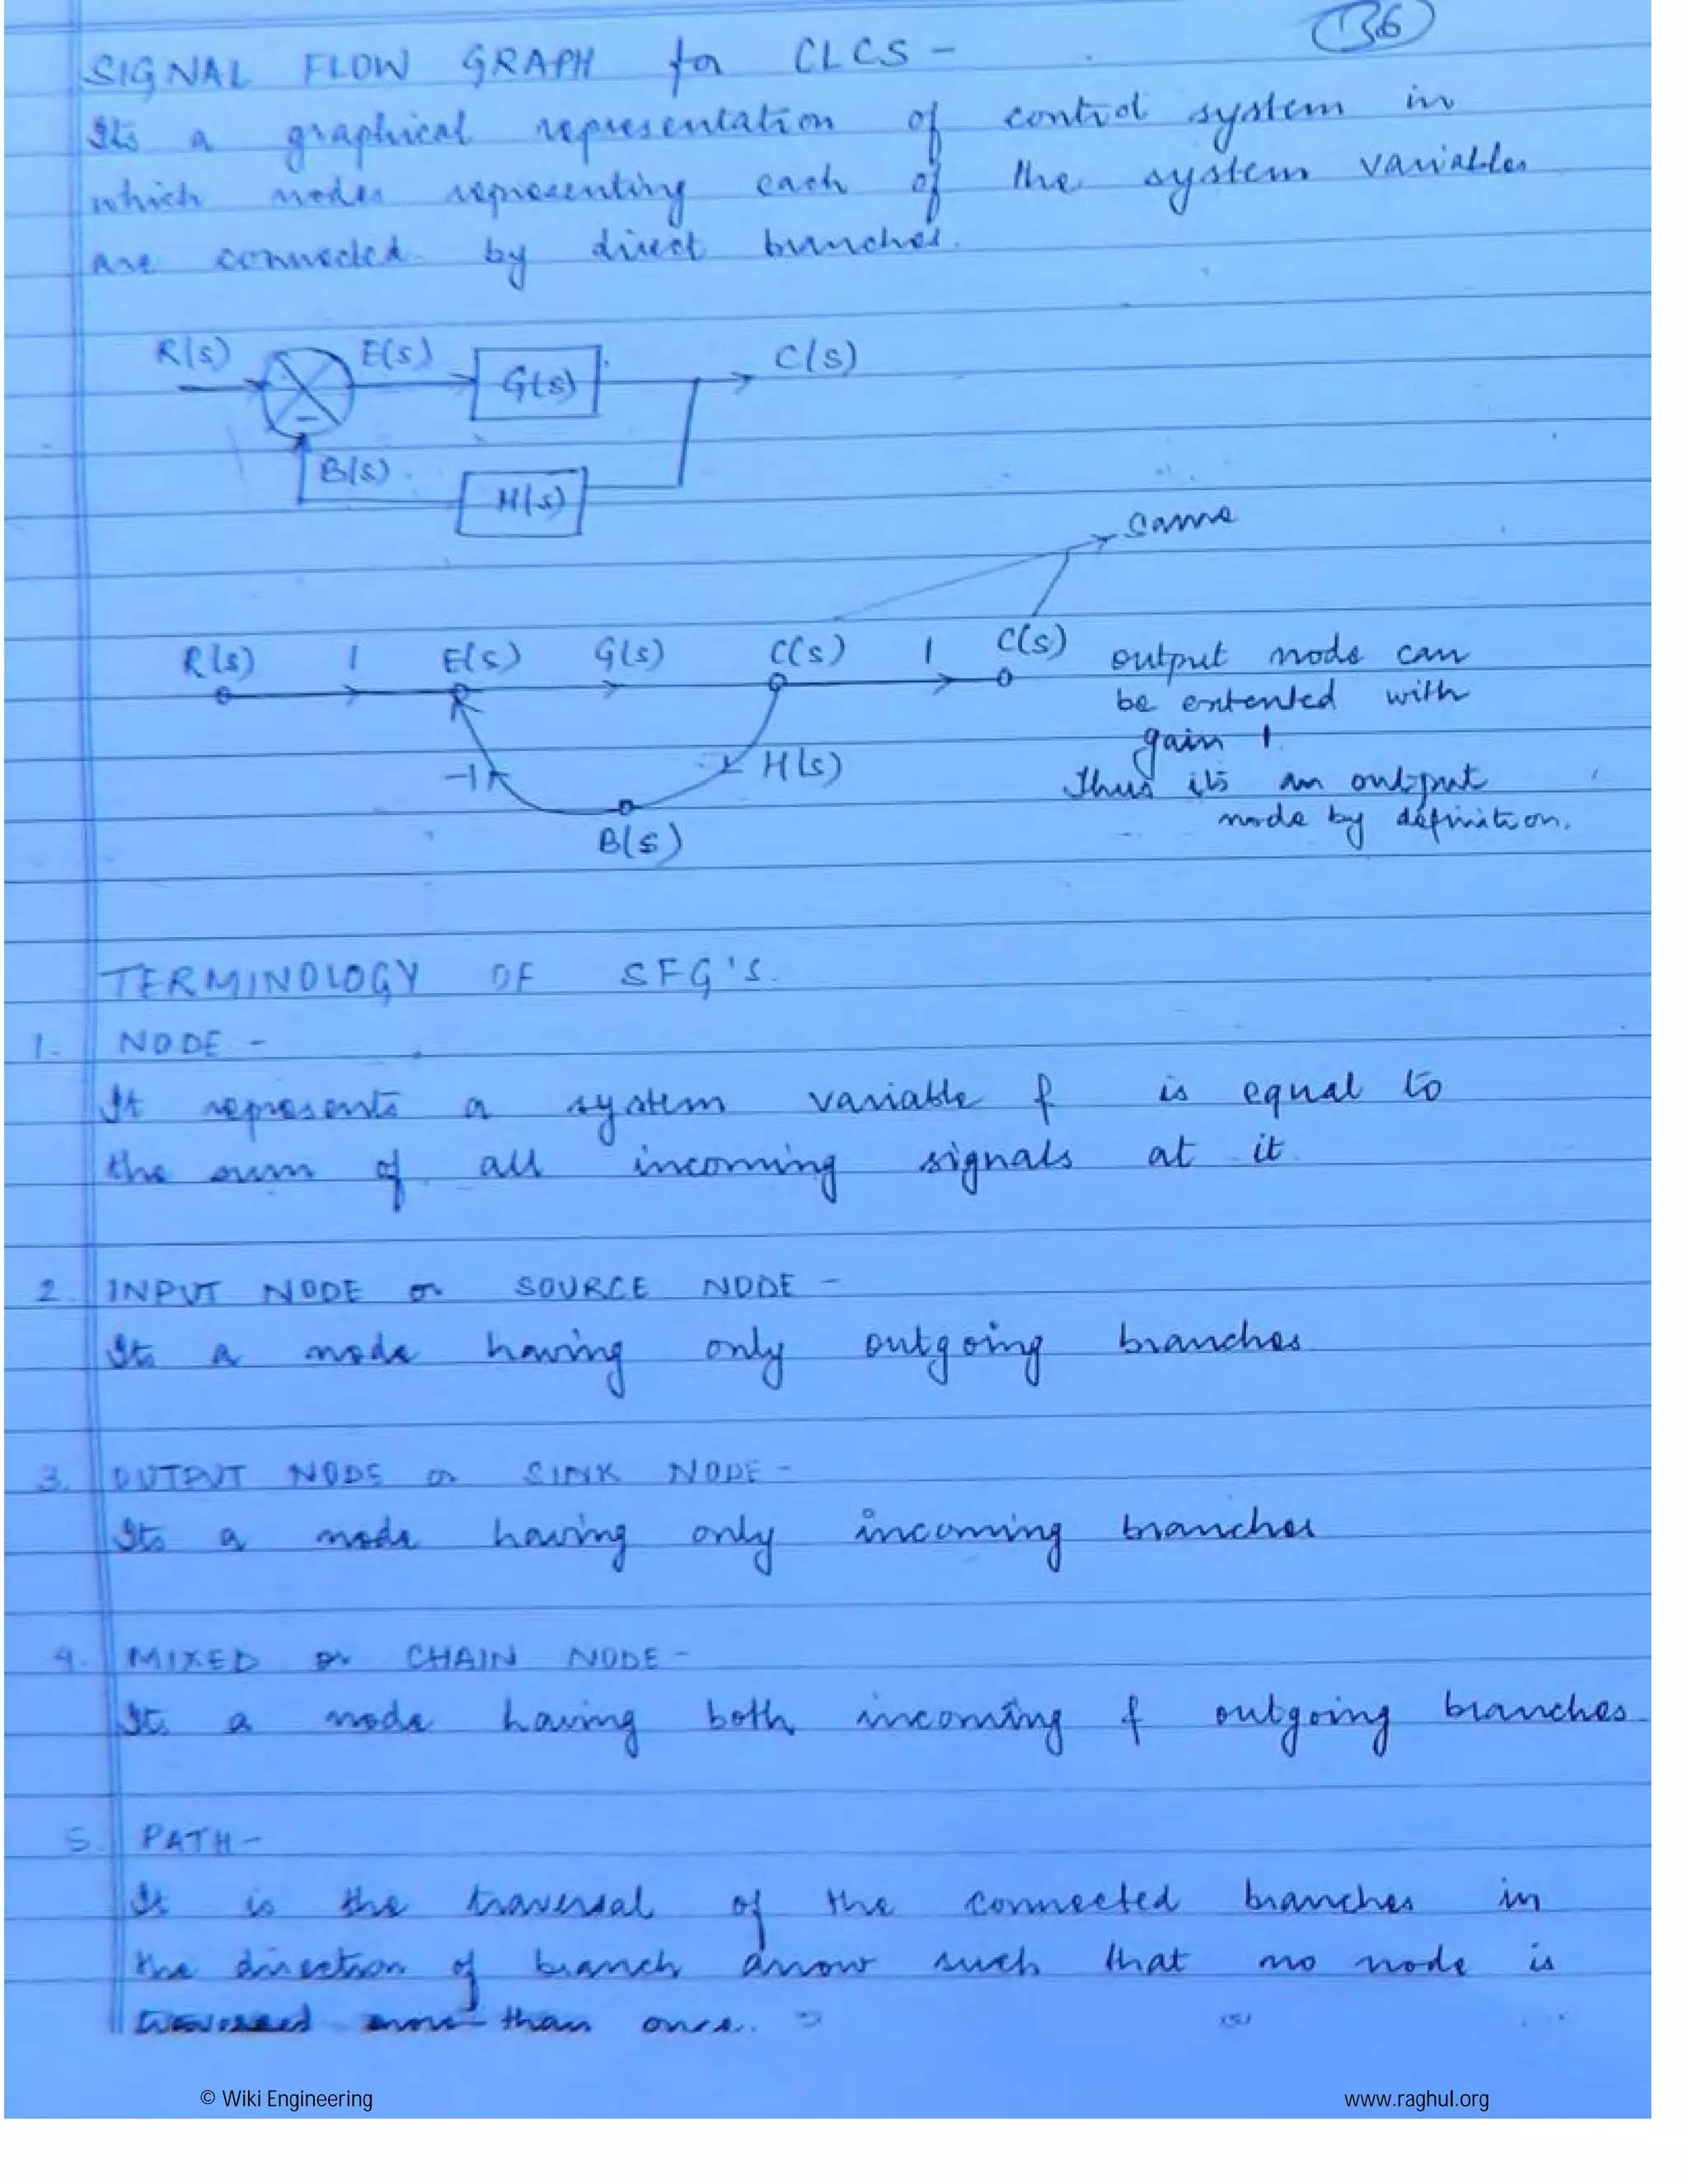 36
SIGNAL FLOW GRAPH for CLCS -
Its a graphical representation of control system in
which nodes representing each of the system variables
are connected by direct branches.
R(s) E(s) G(s) C(s)
B(s) H(s)
same
R(s) 1 E(s) G(s) C(s) 1 C(s)
output node can
be extented with
gain 1
Thus its an output
node by definition.
-1 H(s)
B(s)
TERMINOLOGY OF SFG'S.
1. NODE -
It represents a system variable & is equal to
the sum of all incoming signals at it
2. INPUT NODE or SOURCE NODE -
Its a node having only outgoing branches
3. OUTPUT NODE or SINK NODE -
Its a node having only incoming branches
4. MIXED or CHAIN NODE -
Its a node having both incoming & outgoing branches
5. PATH -
It is the traversal of the connected branches in
the direction of branch arrow such that no node is
traversed more than once.
© Wiki Engineering www.raghul.org